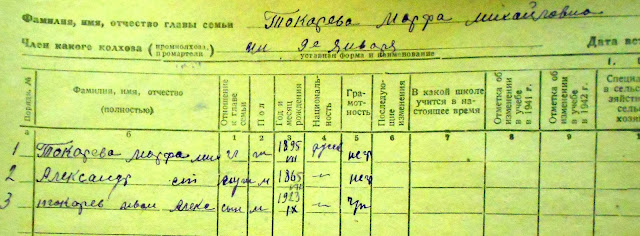 Фамилия, имя, отчество главы семьи Токарева Марфа Михайловна
Член какого колхоза (промколхоза, промартели) им 9е Января Дата вс
уставная форма и наименование
1.
Порядк. №
Фамилия, имя, отчество (полностью)
Отношение к главе семьи
Пол
Год и месяц рождения
Национальность
Грамотность
Последующие изменения
В какой школе учится в настоящее время
Отметка об изменении в учебе в 1941 г.
Отметка об изменении в учебе в 1942 г.
Специа в сельс зяйств сельс хозяй
а б 1 2 3 4 5 6 7 8 9
1 Токарева Марфа Мих гл ж 1895 VII русск нег
2 Александр м 1865 VIII -"- нег
3 Токарев Иван Алекс сын м 1923 IX -"- гр